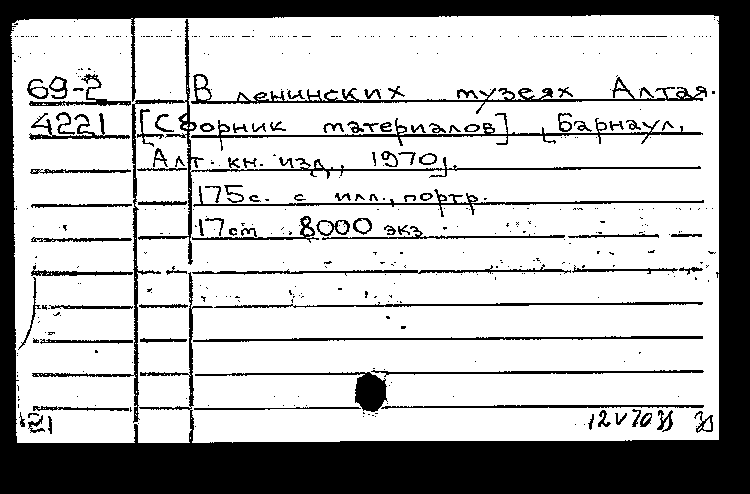 69-2 В ленинских музеях Алтая.
4221 [Сборник материалов]. [Барнаул,
Алт. кн. изд., 1970].
175с. с илл., портр.
17см 8000 экз
21 12 V 70